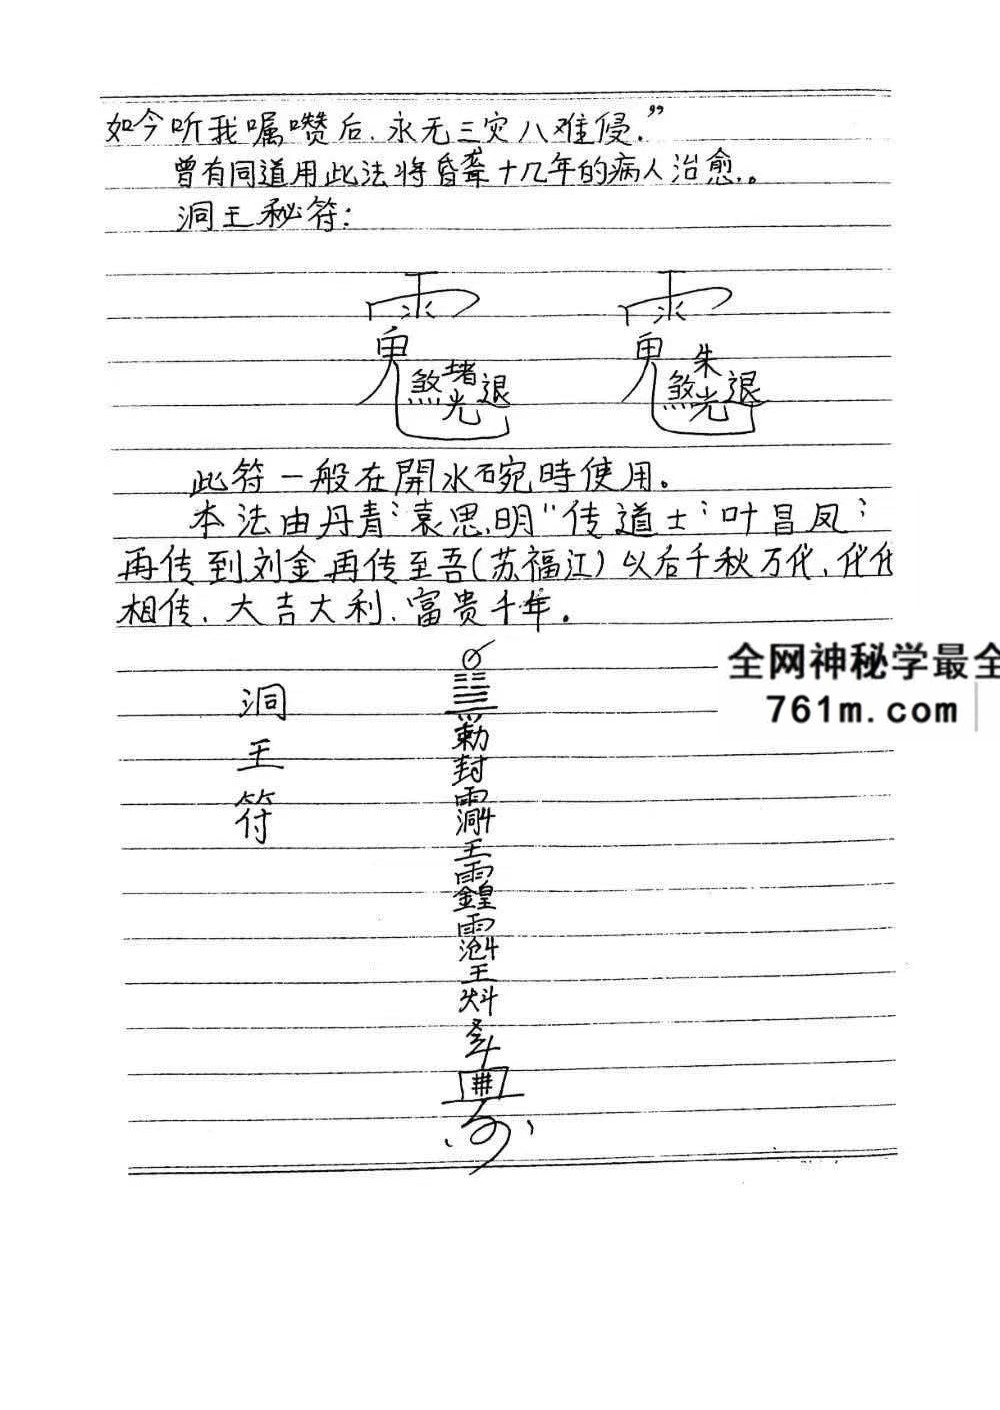 如今听我嘱囋后.永无三灾八难侵.”
曾有同道用此法将昏 十几年的病人治愈.。
洞王秘符:
鬼
煞 堵 光 退
鬼
煞 朱 光 退
此符一般在開水碗時使用。
本法由丹青“袁思明”传道士“叶昌凤”
再传到刘金再传至吾(苏福江)以后千秋万代、代代
相传、大吉大利、富贵千年。
全网神秘学最全
761m.com
洞
王
符
勅
封
王
王